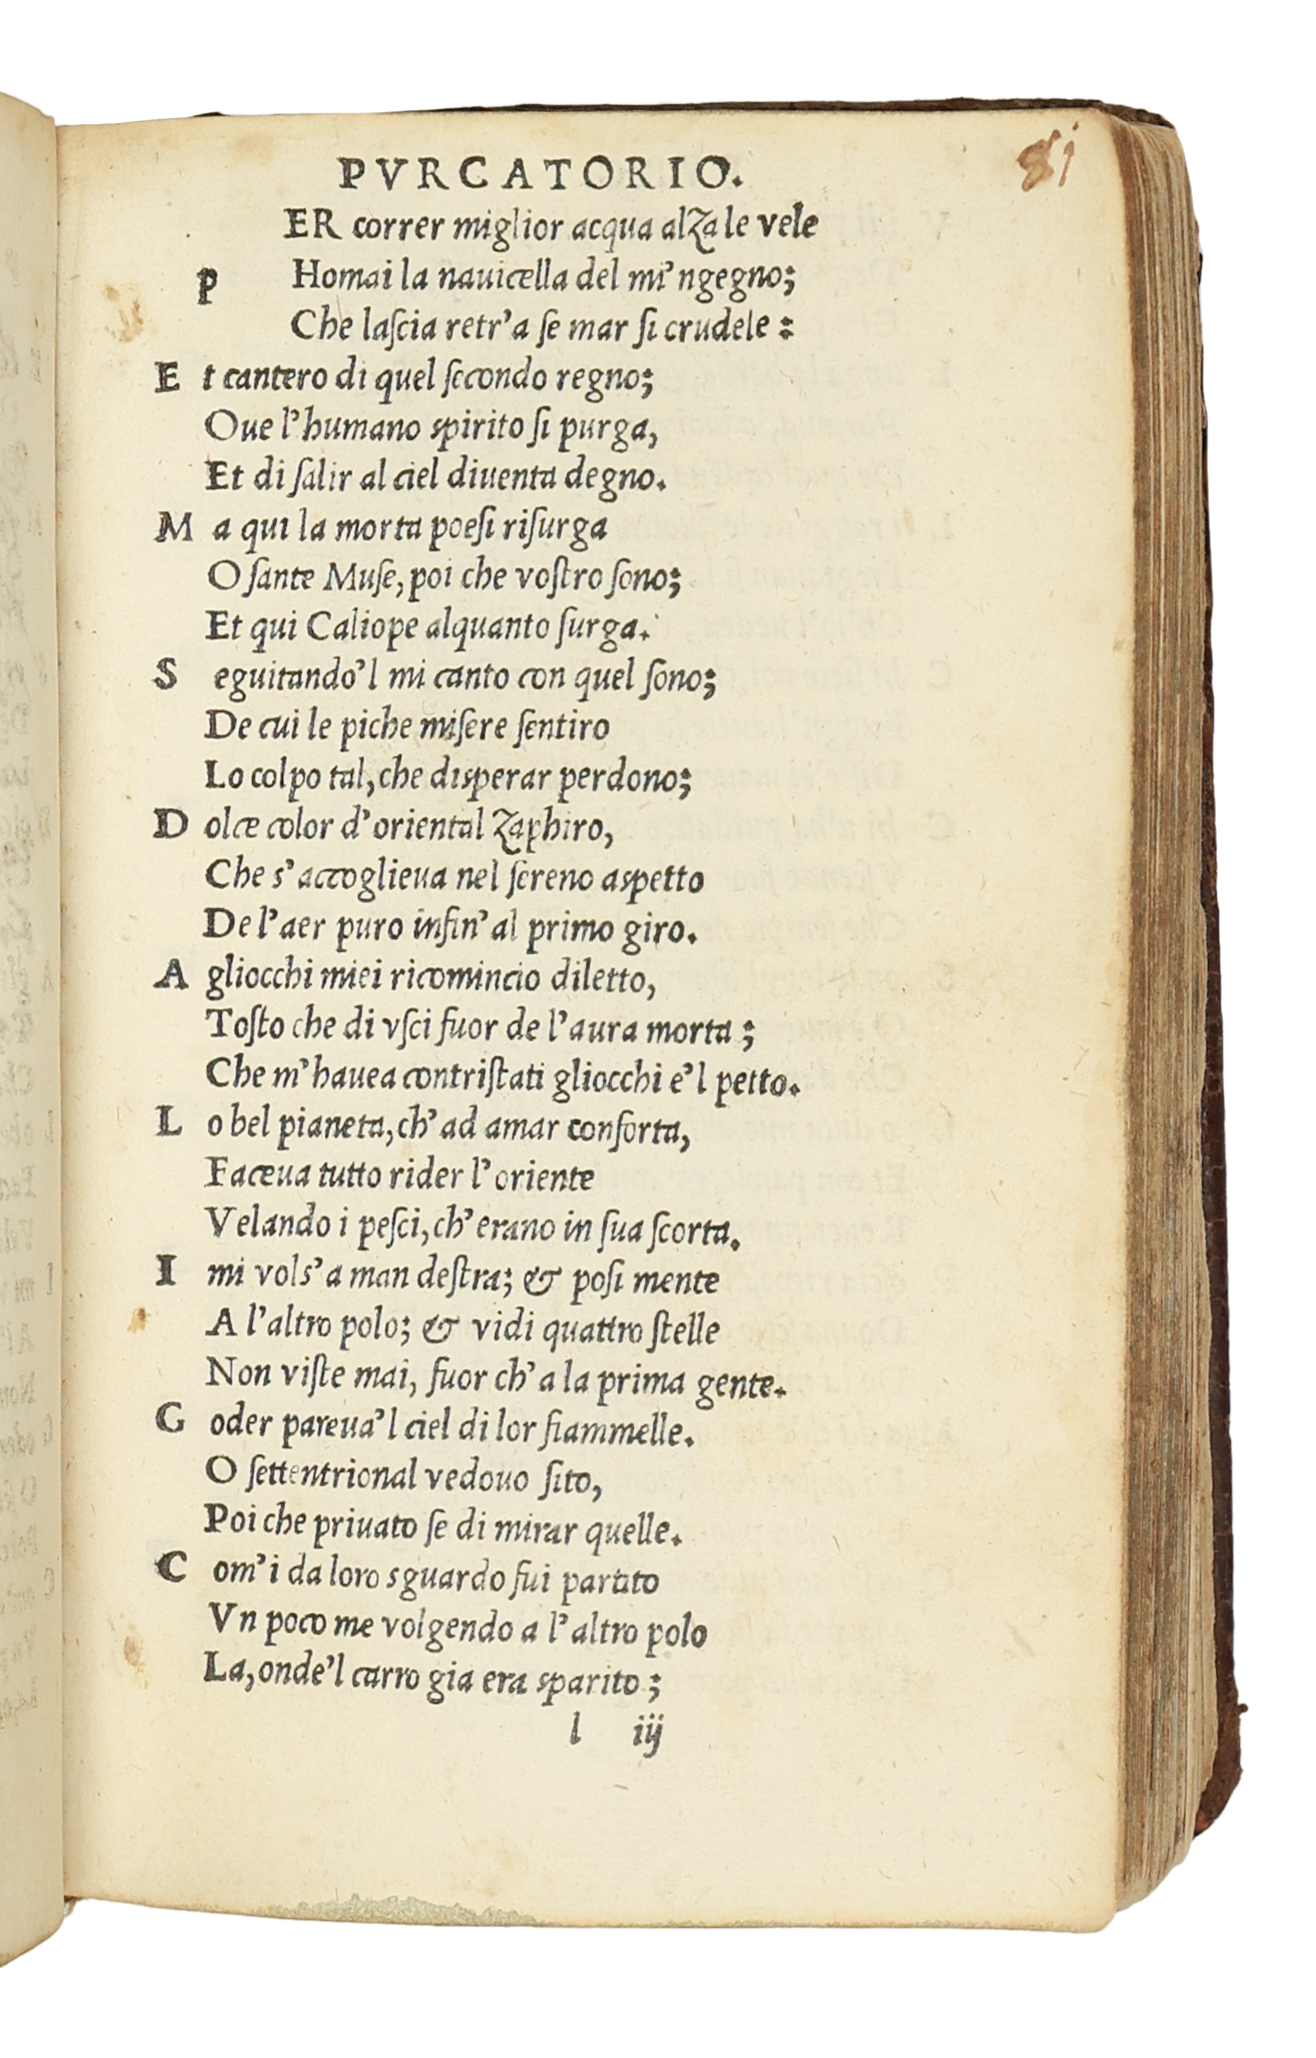 PVRCATORIO.
81
ER correr miglior acqua alza le vele
P Homai la nauicella del mi'ngegno;
Che lascia retr'a se mar si crudele:
E t cantero di quel secondo regno;
Oue l'humano spirito si purga,
Et di salir al ciel diuenta degno.
M a qui la morta poesi risurga
O sante Muse, poi che vostro sono;
Et qui Caliope alquanto surga.
S eguitando'l mi canto con quel sono;
De cui le piche misere sentiro
Lo colpo tal, che disperar perdono;
D olce color d'oriental zaphiro,
Che s'accoglieua nel sereno aspetto
De l'aer puro infin'al primo giro.
A gliocchi miei ricomincio diletto,
Tosto che di vsci fuor de l'aura morta;
Che m'hauea contristati gliocchi e'l petto.
L o bel pianeta, ch'ad amar conforta,
Faceua tutto rider l'oriente
Velando i pesci, ch'erano in sua scorta.
I mi vols'a man destra; & posi mente
A l'altro polo; & vidi quattro stelle
Non viste mai, fuor ch'a la prima gente.
G oder pareua'l ciel di lor fiammelle.
O settentrional vedouo sito,
Poi che priuato se di mirar quelle.
C om'i da loro sguardo fui partito
Vn poco me volgendo a l'altro polo
La, onde'l carro gia era sparito;
l iij